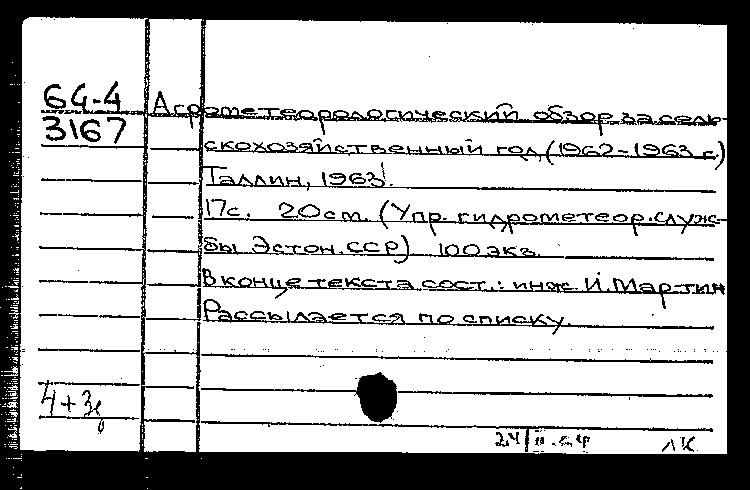 64-4
3167
Агрометеорологический обзор за сель-
скохозяйственный год (1962-1963 г.)
Таллин, 1963.
17с. 20см. (Упр. гидрометеор. служ-
бы Эстон. ССР) 100 экз.
В конце текста сост.: инж. И. Мартин
Рассылается по списку.
4+3
24/II-64 ЛК